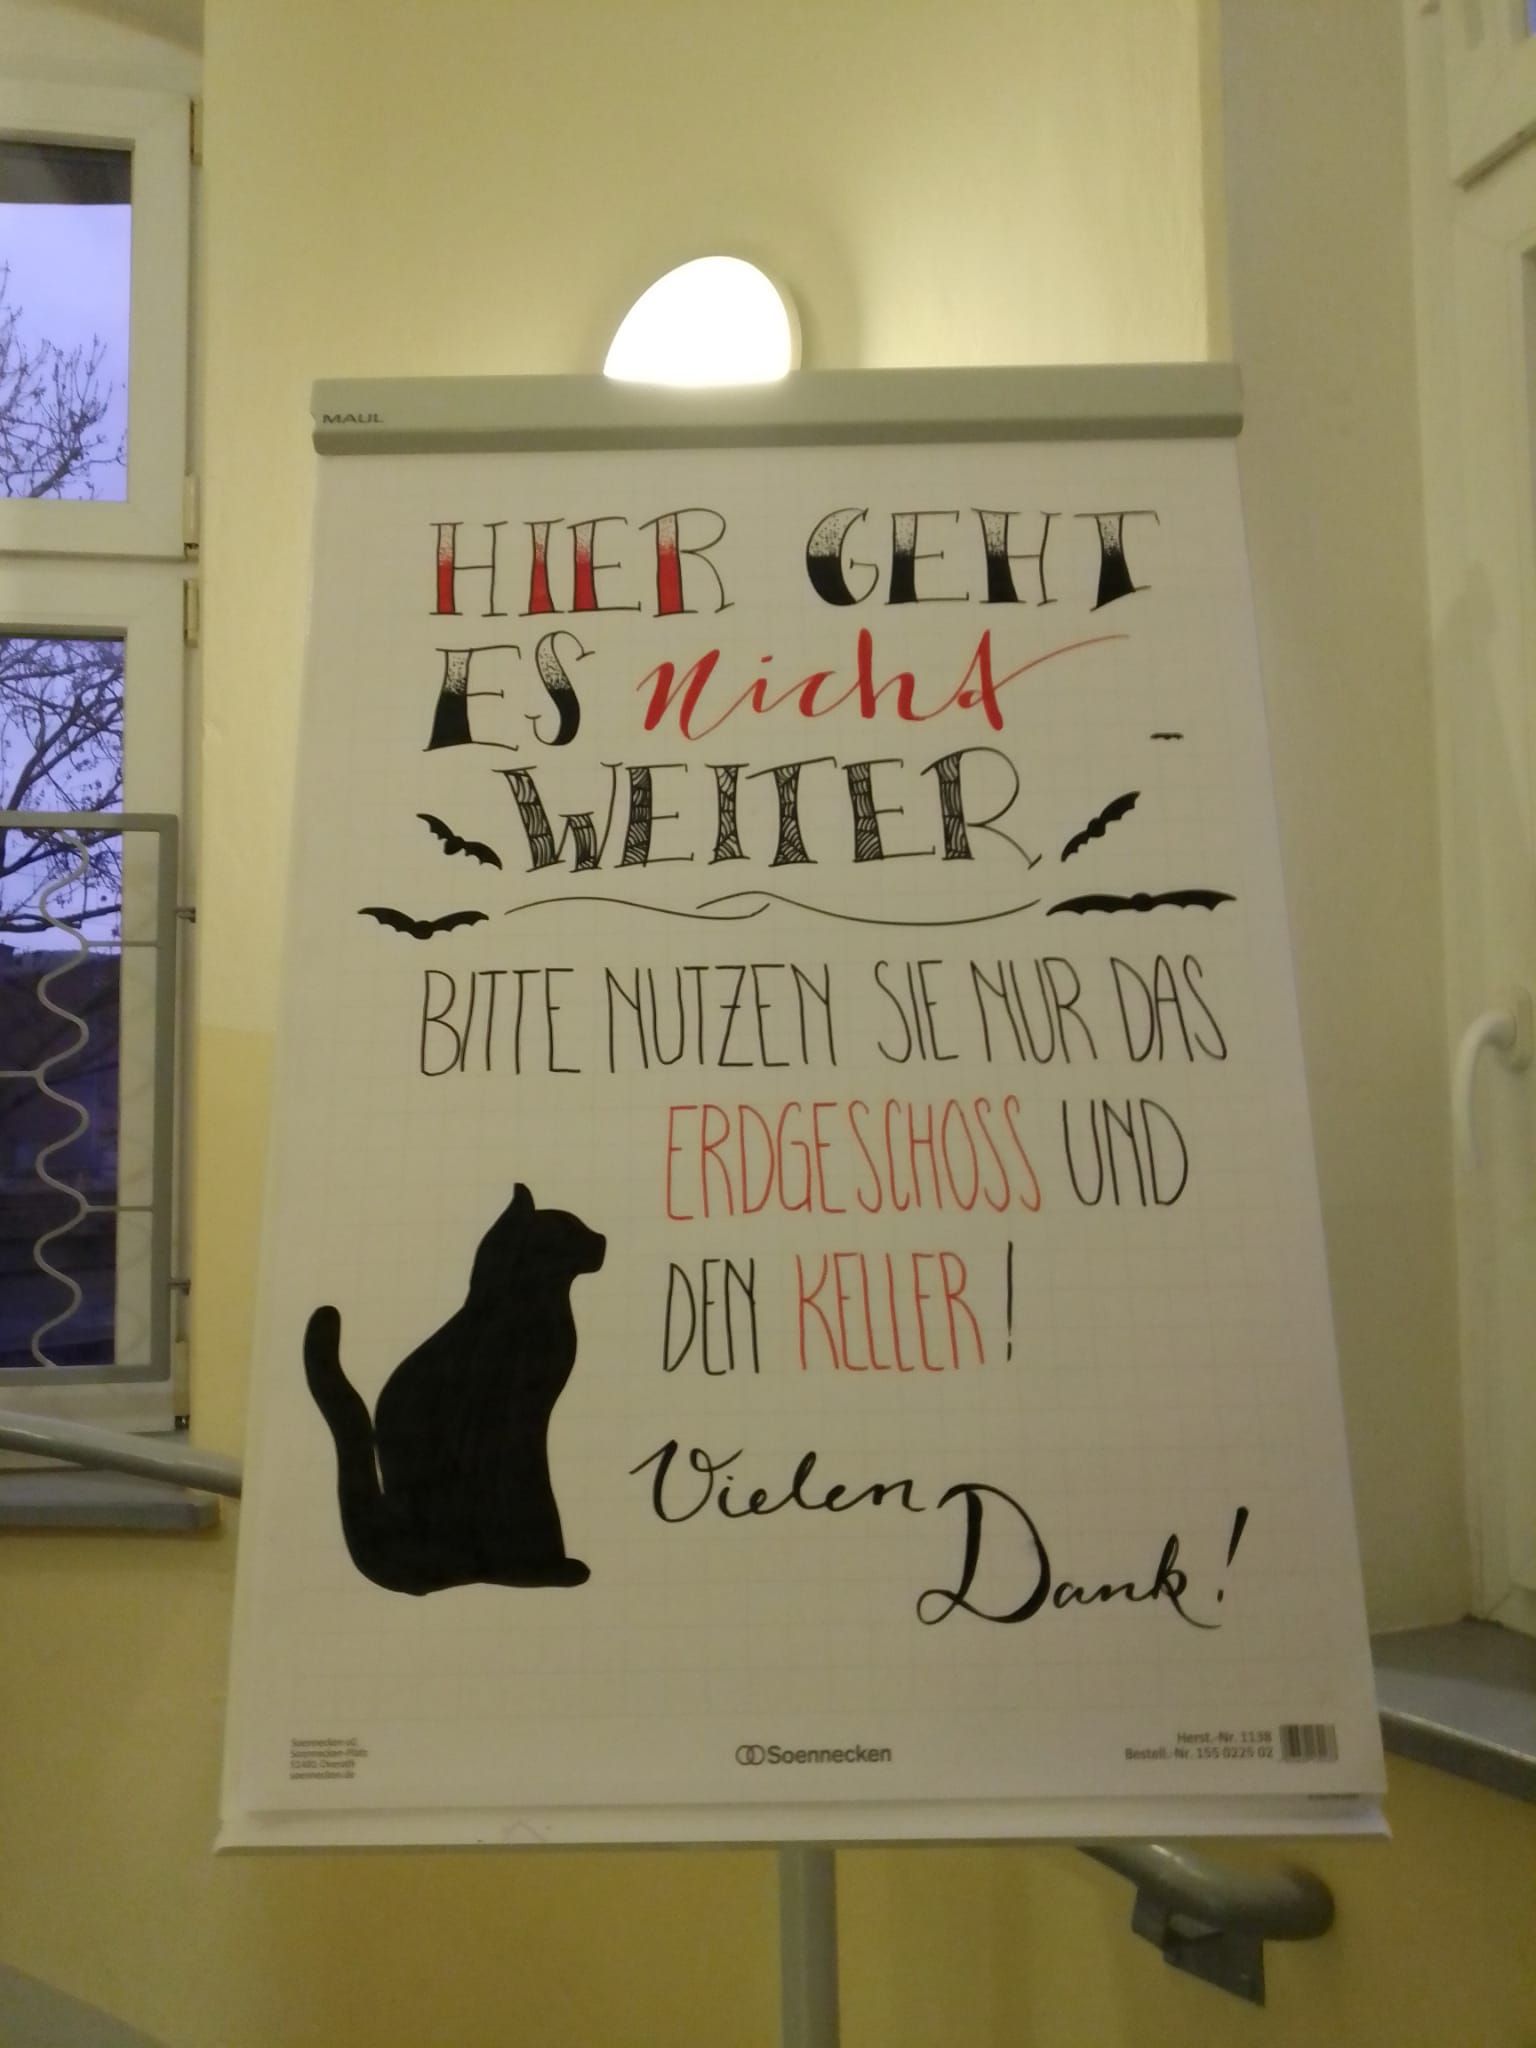 MAUL
HIER GEHT
ES nicht
WEITER
BITTE NUTZEN SIE NUR DAS
ERDGESCHOSS UND
DEN KELLER!
Vielen
Dank!
Soennecken eG
Soennecken-Platz
51491 Overath
soennecken.de
Soennecken
Herst.-Nr. 1138
Bestell.-Nr. 155 0225 02